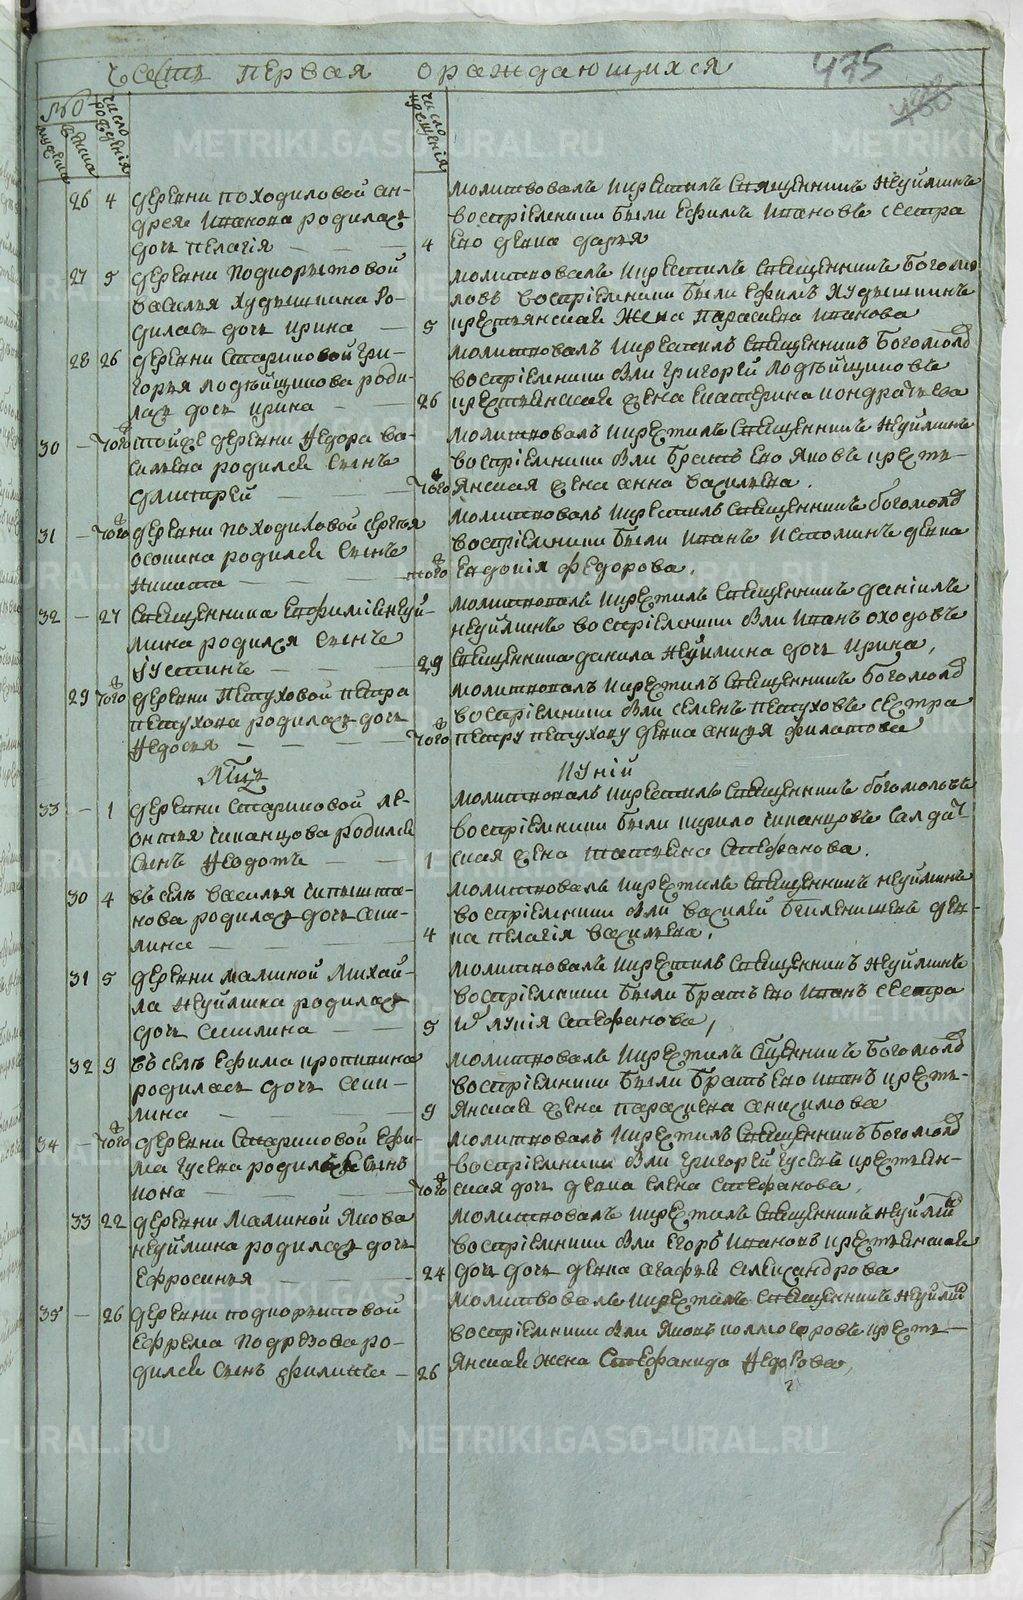 часть первая о раждающихся
475
число рождения
число крещения
мужеска
женска
26 4 деревни походиловой ан-
дрея иванова родилась
дочь пелагія
молитвовалъ и крестилъ священникъ неуйминъ
воспріемники были ефимъ ивановъ сестра
4 его девка дарья
27 5 деревни подкорытовой
василья худышкина ро-
дилась дочь ирина
молитвовалъ и крестилъ священникъ богомо
ловъ воспріемники были ефимъ худышкинъ
5 крестьянская жена парасковья иванова
28 26 деревни стариковой гри-
горья роди-
лась дочь ирина
молитвовалъ и крестилъ священникъ богомол
воспріемники были григорей
26 крестьянская жена екатерина кондратьева
30 того тойже деревни федора ва-
сильева родился сынъ
дмитрей
молитвовалъ и крестилъ священникъ неуйминъ
воспріемники были братъ его яковъ кресть-
того янская жена анна васильева.
31 того деревни походиловой сергея
осокина родился сынъ
никита
молитвовалъ и крестилъ священникъ богомол
воспріемники были иванъ истоминъ девка
того евдокія федорова.
32 27 священника ефиміа неуй-
мина родился сынъ
іустинъ
молитвовалъ и крестилъ священникъ даніилъ
неуйминъ воспріемники были иванъ оходовъ
29 священника данила неуймина дочь ирина,
29 того деревни петуховой петра
петухова родилась дочь
федосья
молитвовалъ и крестилъ священникъ богомол
воспріемники были семенъ петуховъ сестра
того петру петухову девка анисья филатова
іуній
33 1 деревни стариковой ле-
онтья чипанцова родился
сынъ федотъ
молитвовалъ и крестилъ священникъ богомоловъ
воспріемники были кирило чипанцовъ салдат
1 ская жена татьяна стефанова.
30 4 въ селе василья
нова родилась дочь аки-
лина
молитвовалъ и крестилъ священникъ неуйминъ
воспріемники были василей дев-
4 ка пелагія васильева.
31 5 деревни малиной михай-
ла неуймина родилась
дочь акилина
молитвовалъ и крестилъ священникъ неуйминъ
воспріемники были братъ его иванъ сестра
5 стефанова,
32 9 въ селе ефима кропивина
родилась дочь аки-
лина
молитвовалъ и крестилъ сщенникъ богомол
воспріемники были братъ его иванъ кресть-
9 янская жена парасковья анисимова
34 того деревни стариковой ефи-
ма гусева родился сынъ
иона
молитвовалъ и крестилъ священникъ богомол
воспріемники были григорей гусевъ крестьян-
того ская дочь девка елена стефанова,
33 22 деревни малиной якова
неуймина родилась дочь
ефросинья
молитвовалъ и крестилъ священникъ неуймин
воспріемники были егоръ ивановъ крестьянская
24 дочь дочь девка агафья александрова
35 26 деревни подкорытовой
ефрема подрезова ро-
дился сынъ филипъ
молитвовалъ и крестилъ священникъ неуймин
воспріемники были яковъ колмогоровъ кресть-
26 янская жена стефанида федорова,
METRIKI.GASO-URAL.RU